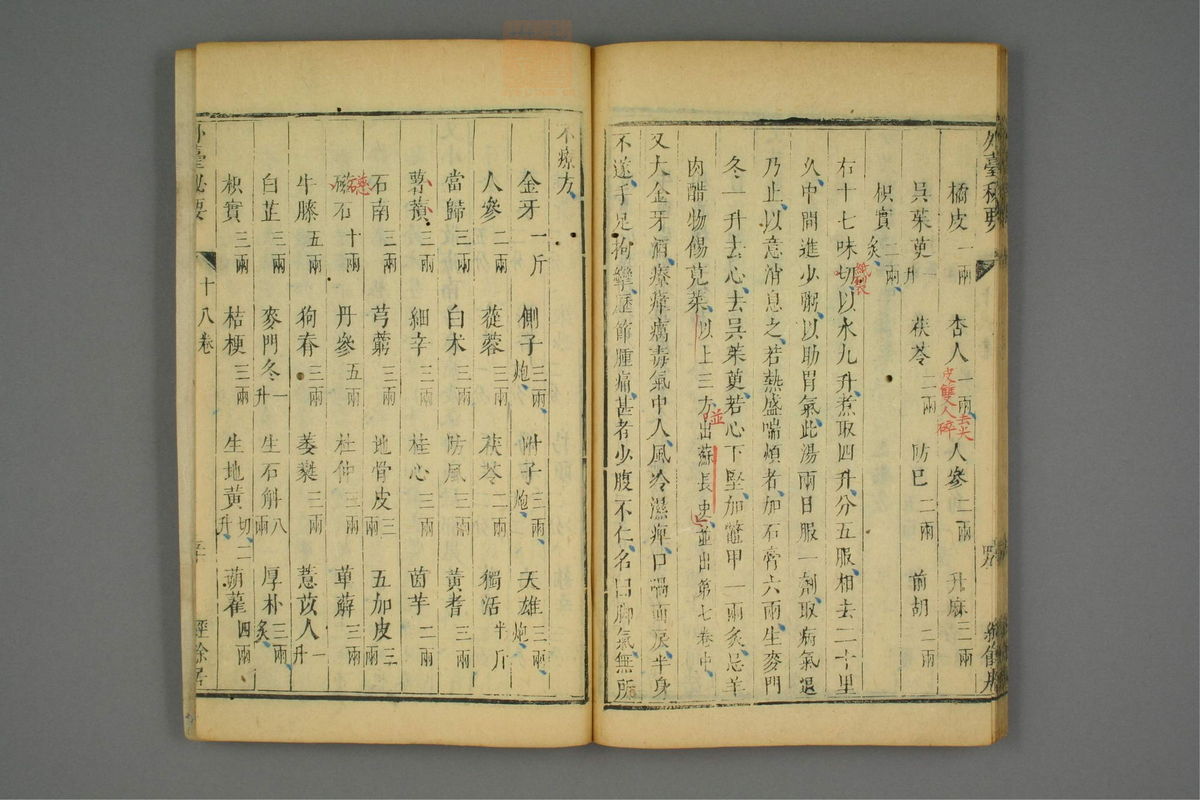 外臺秘要
橘皮一兩 杏人一兩去尖皮雙人碎 人參二兩 升麻三兩
吳茱萸一升 茯苓二兩 防巳二兩 前胡二兩
枳實二兩炙
右十七味切以水九升煮取四升分五服相去二十里
久中間進少粥以助胃氣此湯兩日服一劑取病氣退
乃止以意消息之若熱盛喘煩者加石膏六兩生麥門
冬一升去心去吳茱萸若心下堅加鼈甲一兩炙忌羊
肉醋物傷莧菜以上三方出蘇長史並出第七卷中
又大金牙酒療瘴癘毒氣中人風冷濕痺口喎面戾半身
不遂手足拘攣歷節腫痛甚者少腹不仁名曰脚氣無所
不療方
金牙一斤 側子三兩炮 附子三兩炮 天雄三兩炮
人參二兩 蓯蓉三兩 茯苓二兩 獨活半斤
當歸三兩 白术三兩 防風三兩 黃耆三兩
薯蕷三兩 細辛三兩 桂心三兩 茵芋二兩
石南三兩 芎藭三兩 地骨皮三兩 五加皮三兩
磁石十兩 丹參五兩 杜仲三兩 萆薢三兩
牛膝五兩 狗脊三兩 萎蕤三兩 薏苡人一升
白芷三兩 麥門冬一升 生石斛八兩 厚朴三兩炙
枳實三兩 桔梗三兩 生地黃切二升 蒴藋四兩
外臺秘要 十八卷 經餘居